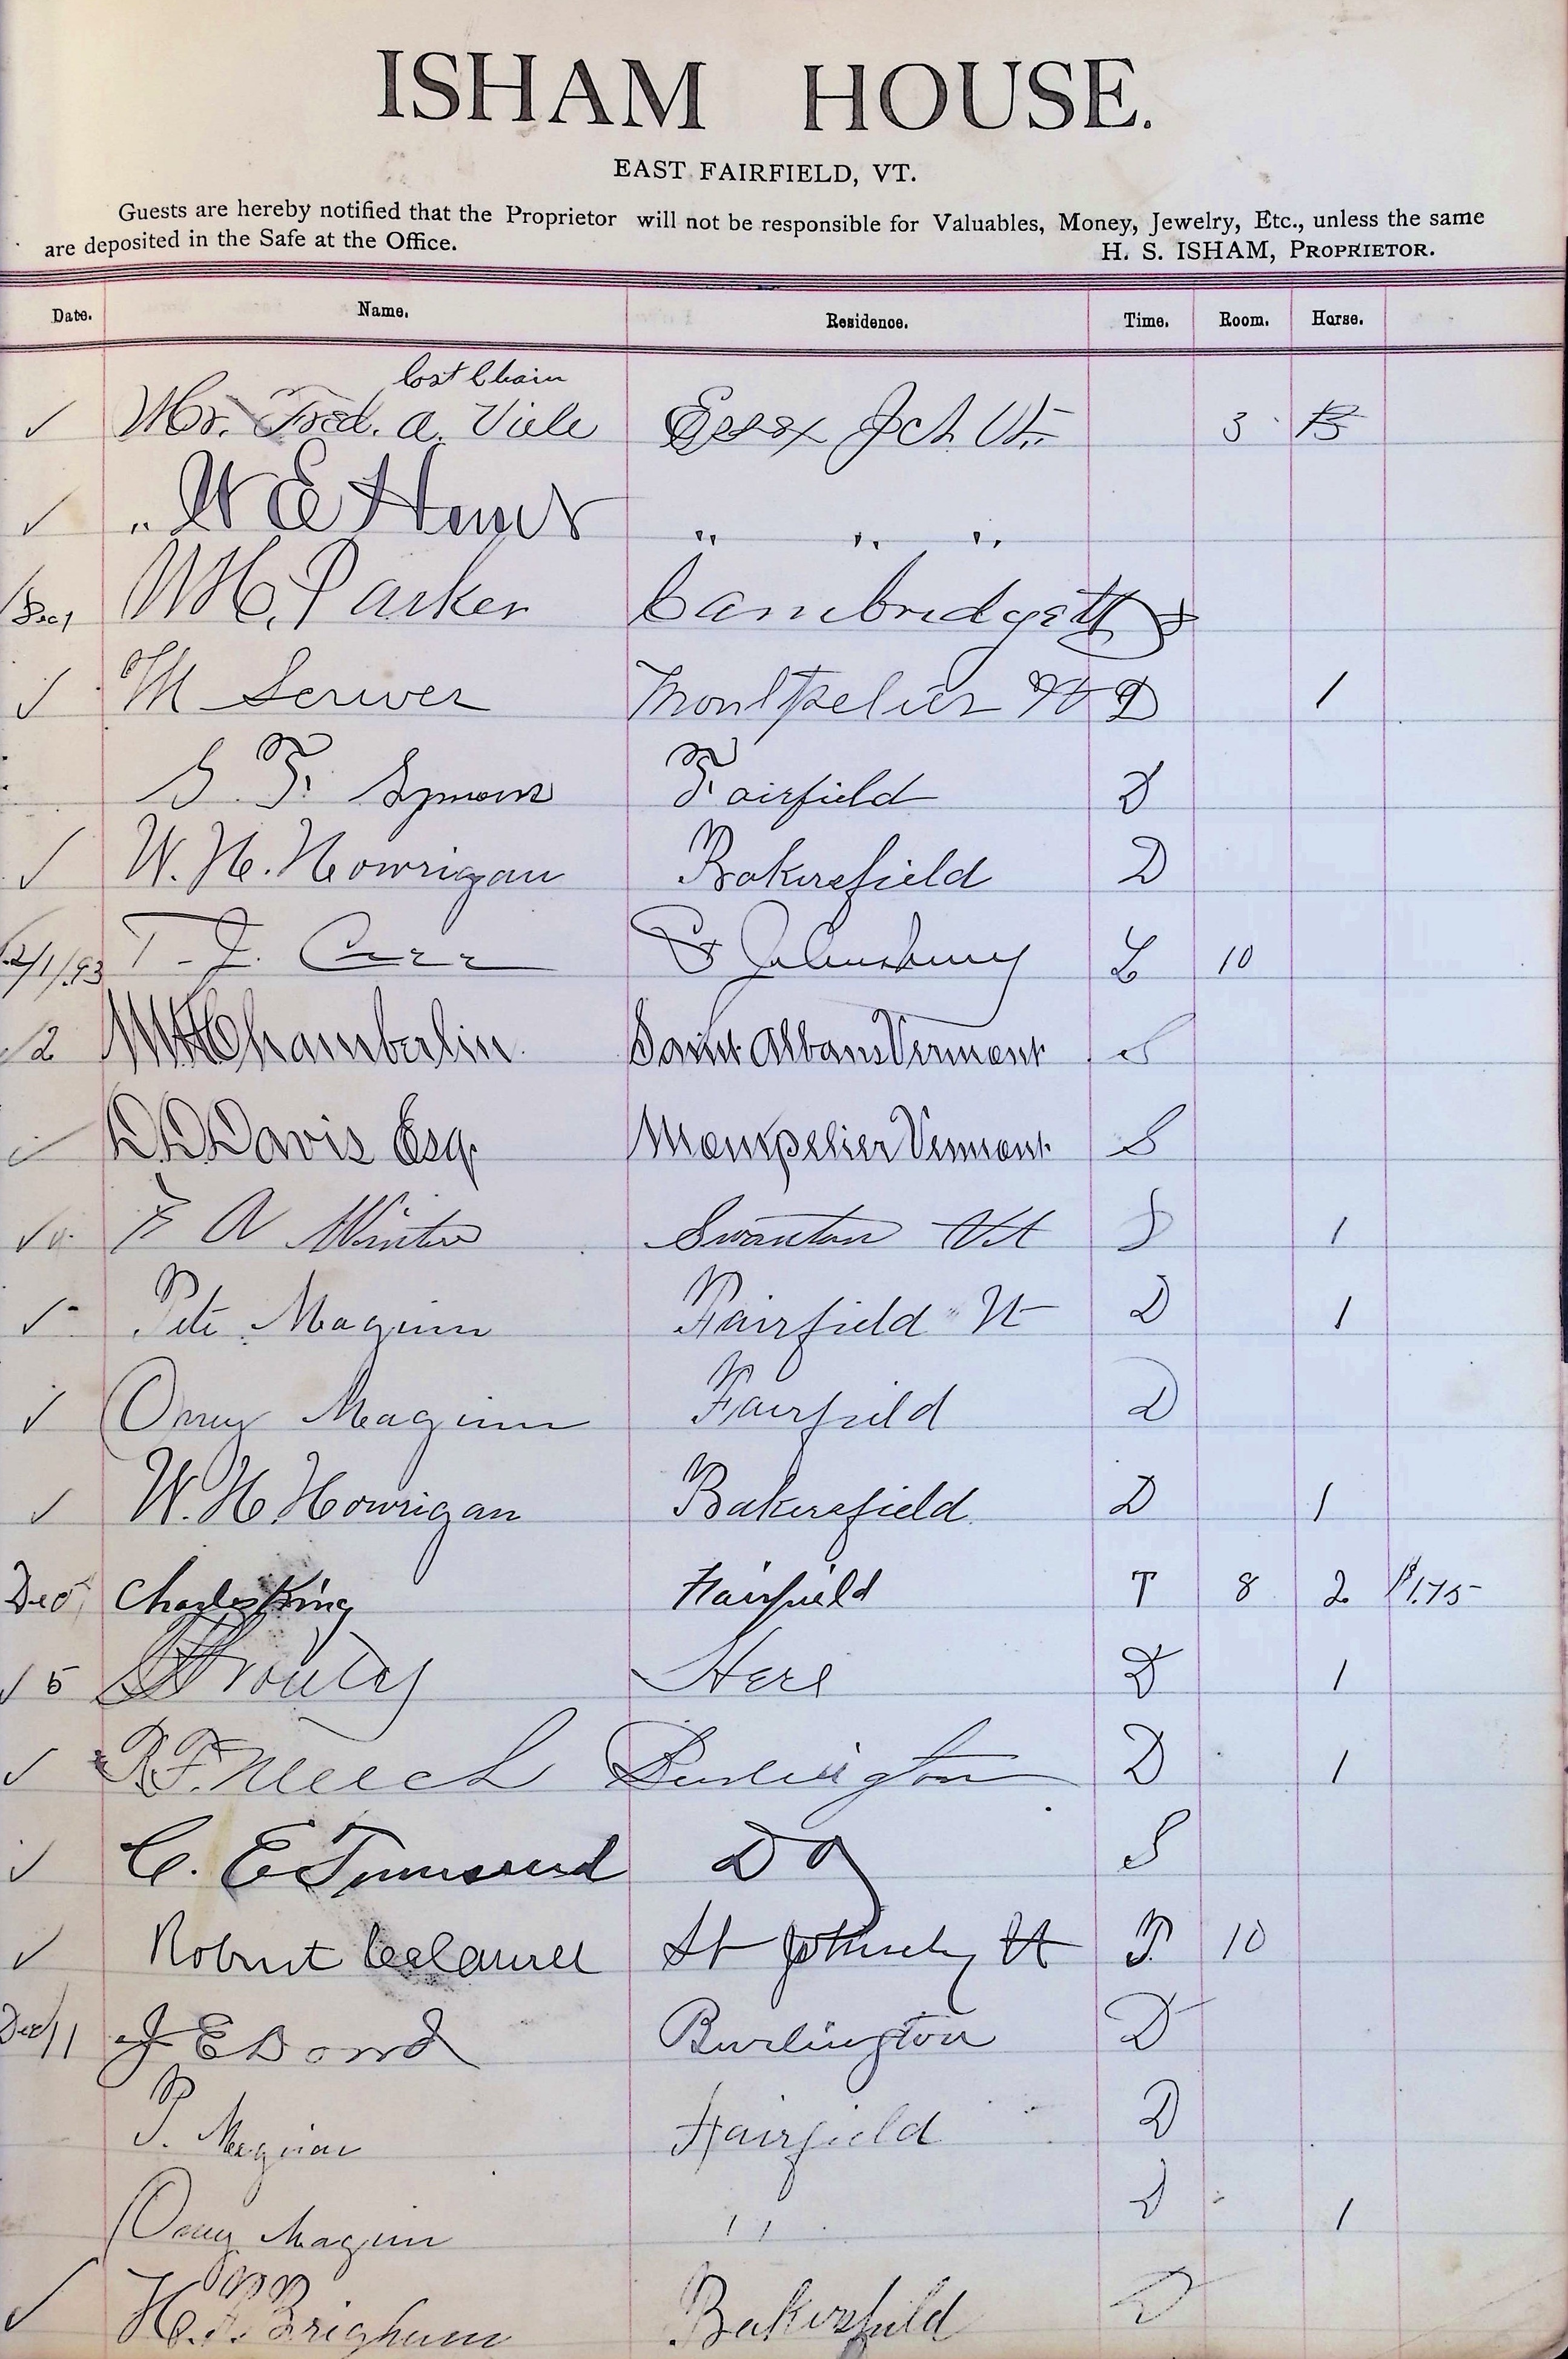 ISHAM HOUSE.
EAST FAIRFIELD, VT.
Guests are hereby notified that the Proprietor will not be responsible for Valuables, Money, Jewelry, Etc., unless the same
are deposited in the Safe at the Office. H. S. ISHAM, PROPRIETOR.
Date. Name. Residence. Time. Room. Horse.
Lost Chain
✓ Mr. Fred. A. Viele Essex Jct Vt. 3
✓ " W E " " "
Dec 1 W H. Parker Cambridge Vt
✓ M Serwer Montpelier Vt D 1
S. F. Symons Fairfield D
✓ W. H. Howrigan Bakersfield D
12/1/93 T. J. Carr St Johnsbury L 10
✓2 Chamberlin Saint Albans Vermont S
✓ D.D. Davis Esq. Montpelier Vermont S
✓ F A Winter Swanton Vt S 1
✓ Pete Maginn Fairfield Vt D 1
✓ Omy Maginn Fairfield D
✓ W. H. Howrigan Bakersfield D 1
Dec 5 Charles King Fairfield T 8 2 $1.75
✓ 5 Prouty Here D 1
✓ R.F. Meech Burlington D 1
✓ C. E. Do S
✓ Robert St Johnsbury Vt T. 10
Dec/11 J E Dowd Burlington D
P. Maginn Fairfield D
Omy Maginn " D 1
✓ H. P. Brigham Bakersfield D